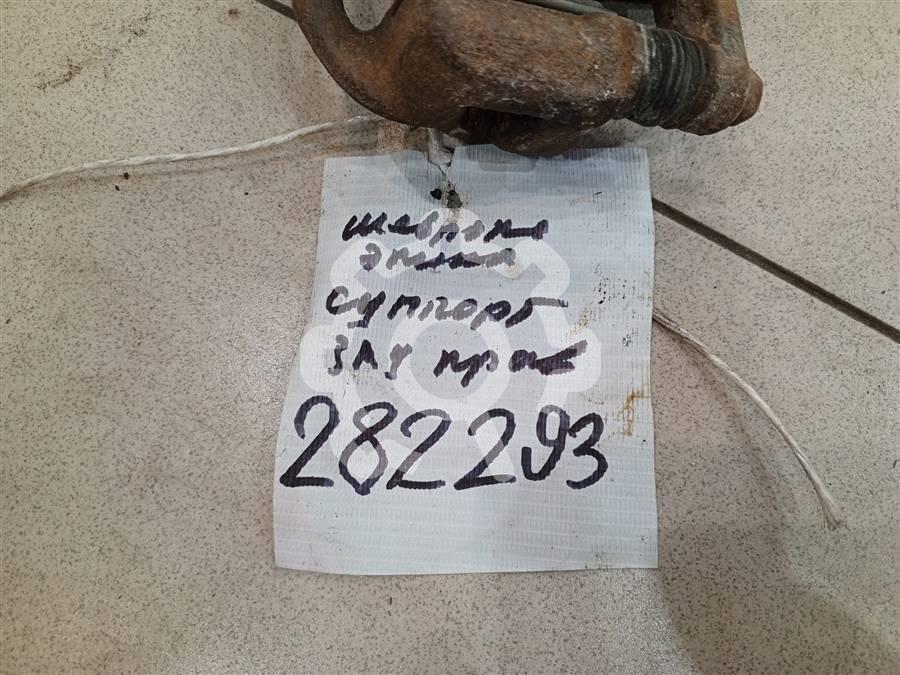 шевроле
суппорт
зад прав
282293